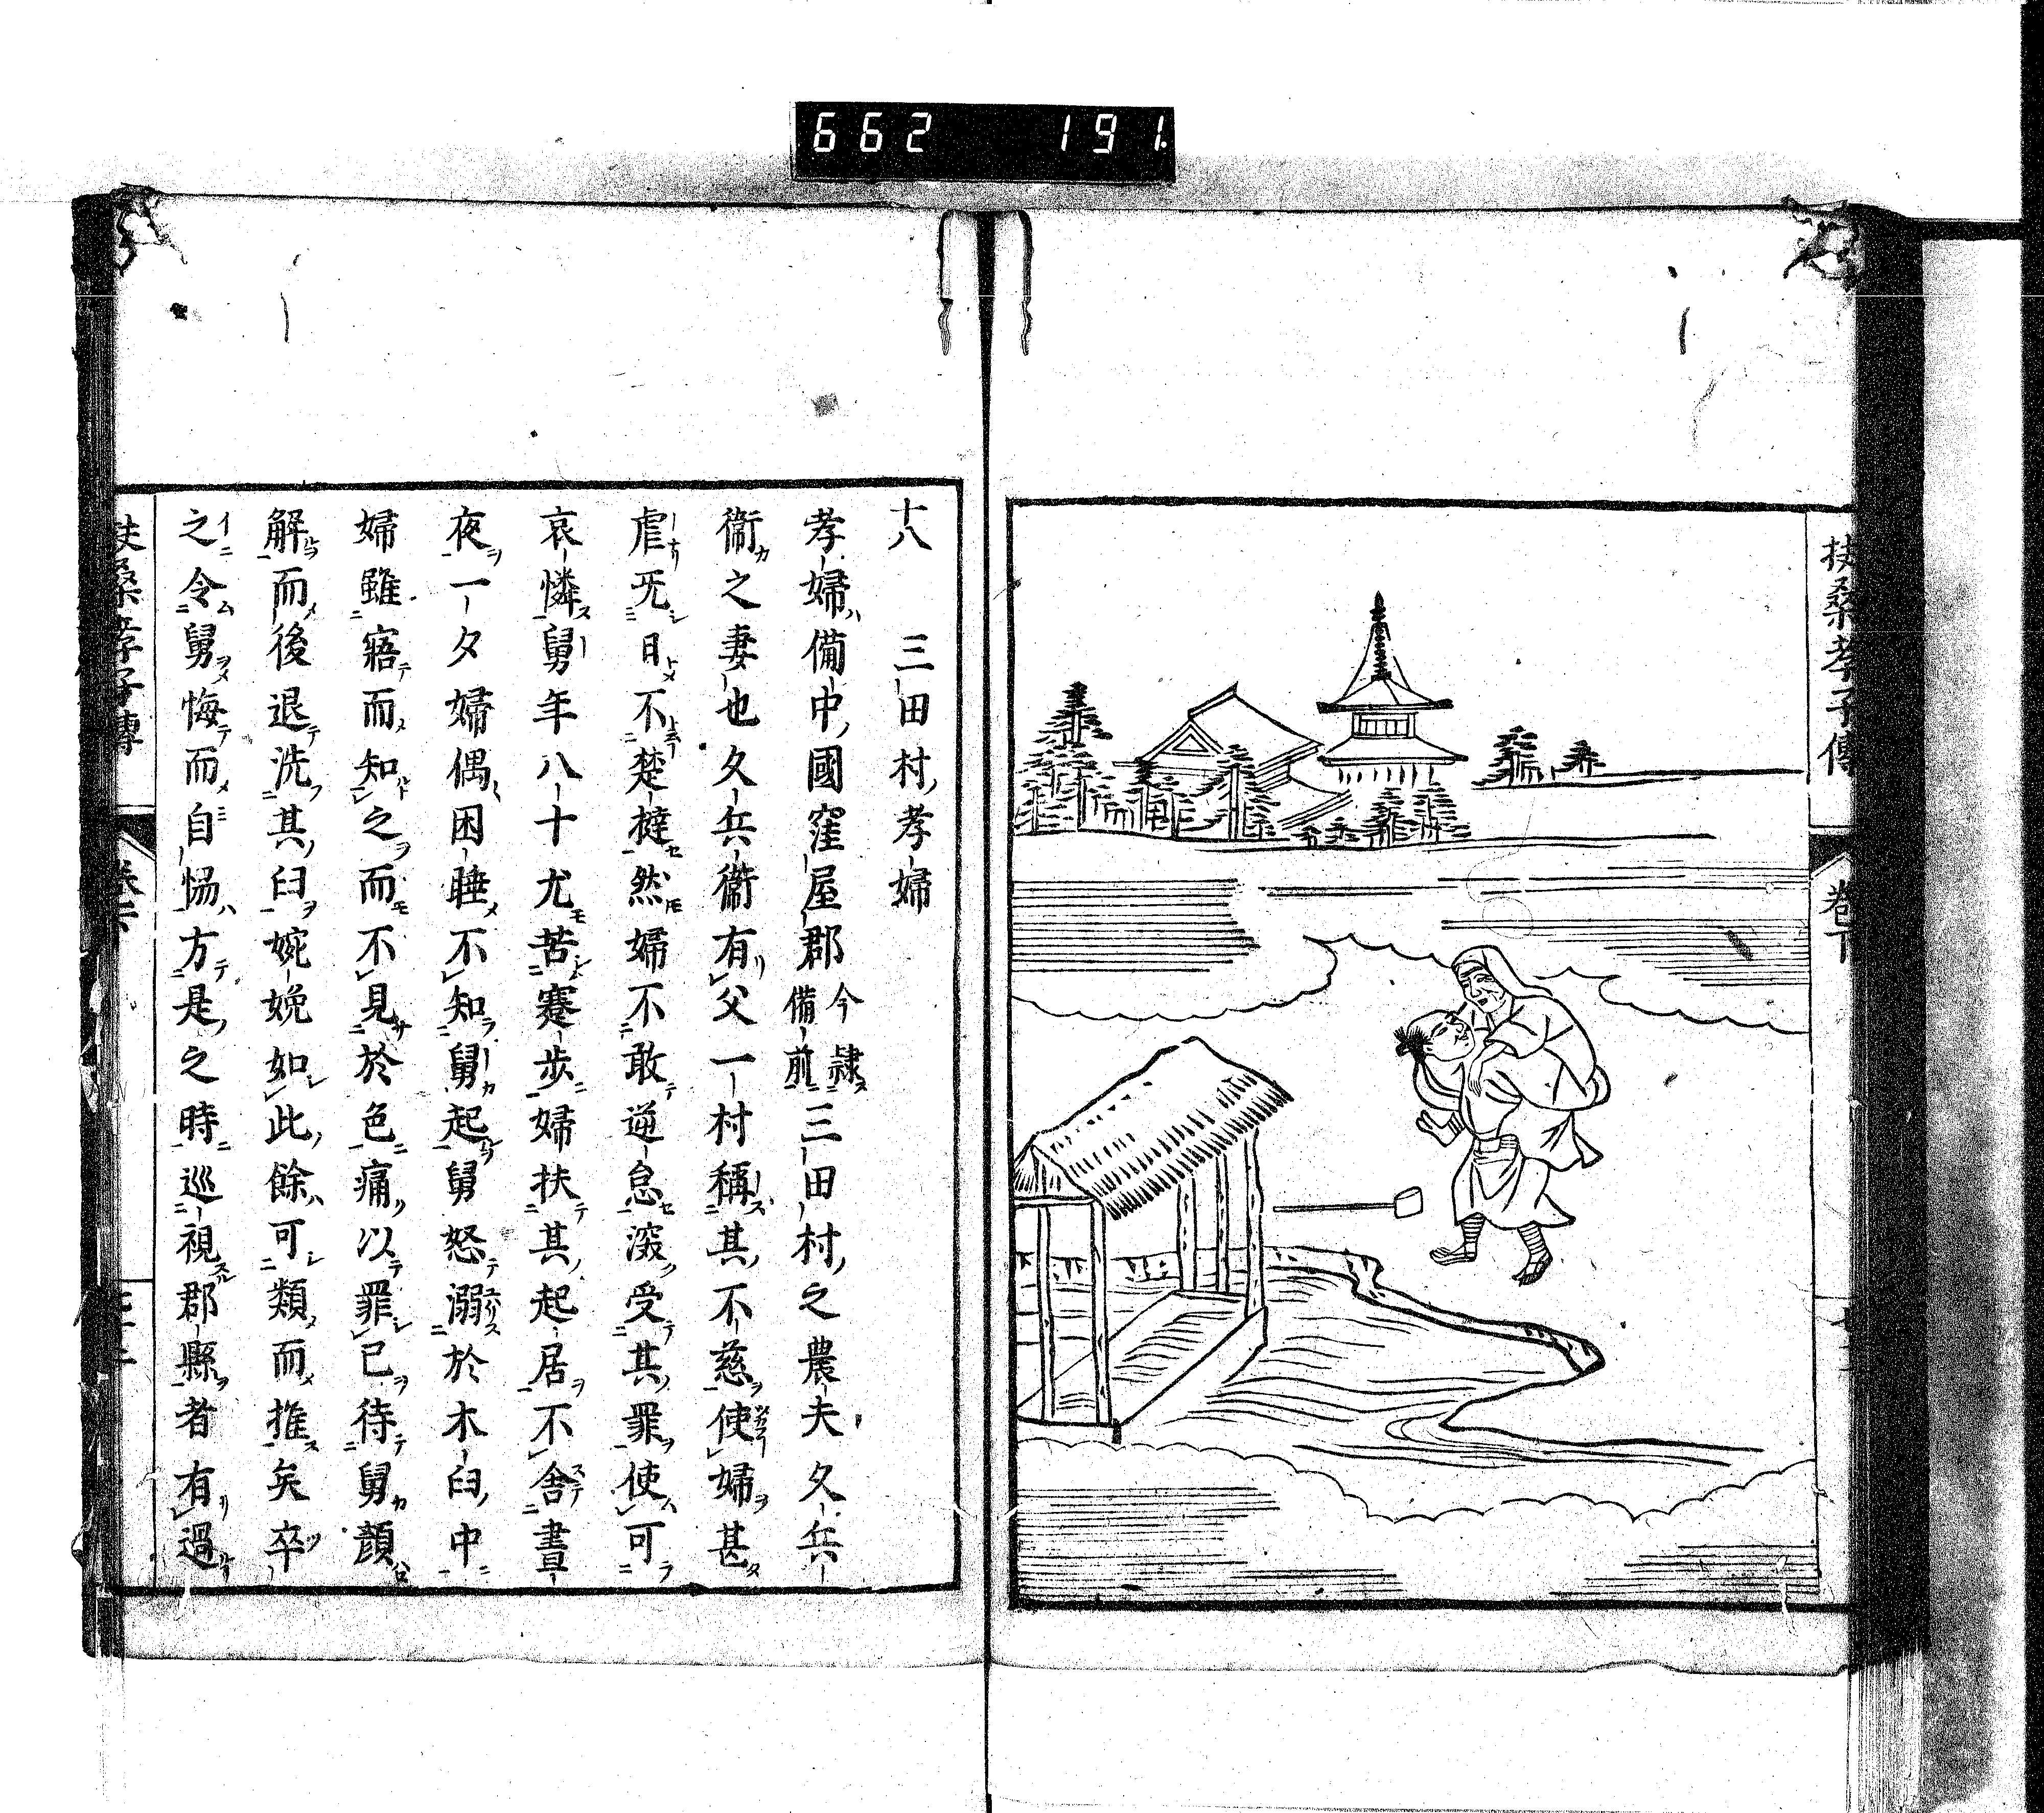 662 191.
扶桑孝子傳
卷下
十八 三田村孝婦
孝婦備中國窪屋郡今隷備前三田村之農夫久兵
衞之妻也久兵衞有父一村稱其不慈使婦甚
虐无日不楚撻然婦不敢逆怠深受其罪使可
哀憐舅年八十尤苦蹇步婦扶其起居不舎晝
夜一夕婦偶困睡不知舅起舅怒溺於木臼中
婦雖寤而知之而不見於色痛以罪已待舅顔
解而後退洗其臼婉娩如此餘可類而推矣卒
之令舅悔而自惕方是之時巡視郡縣者有過
扶桑孝子傳